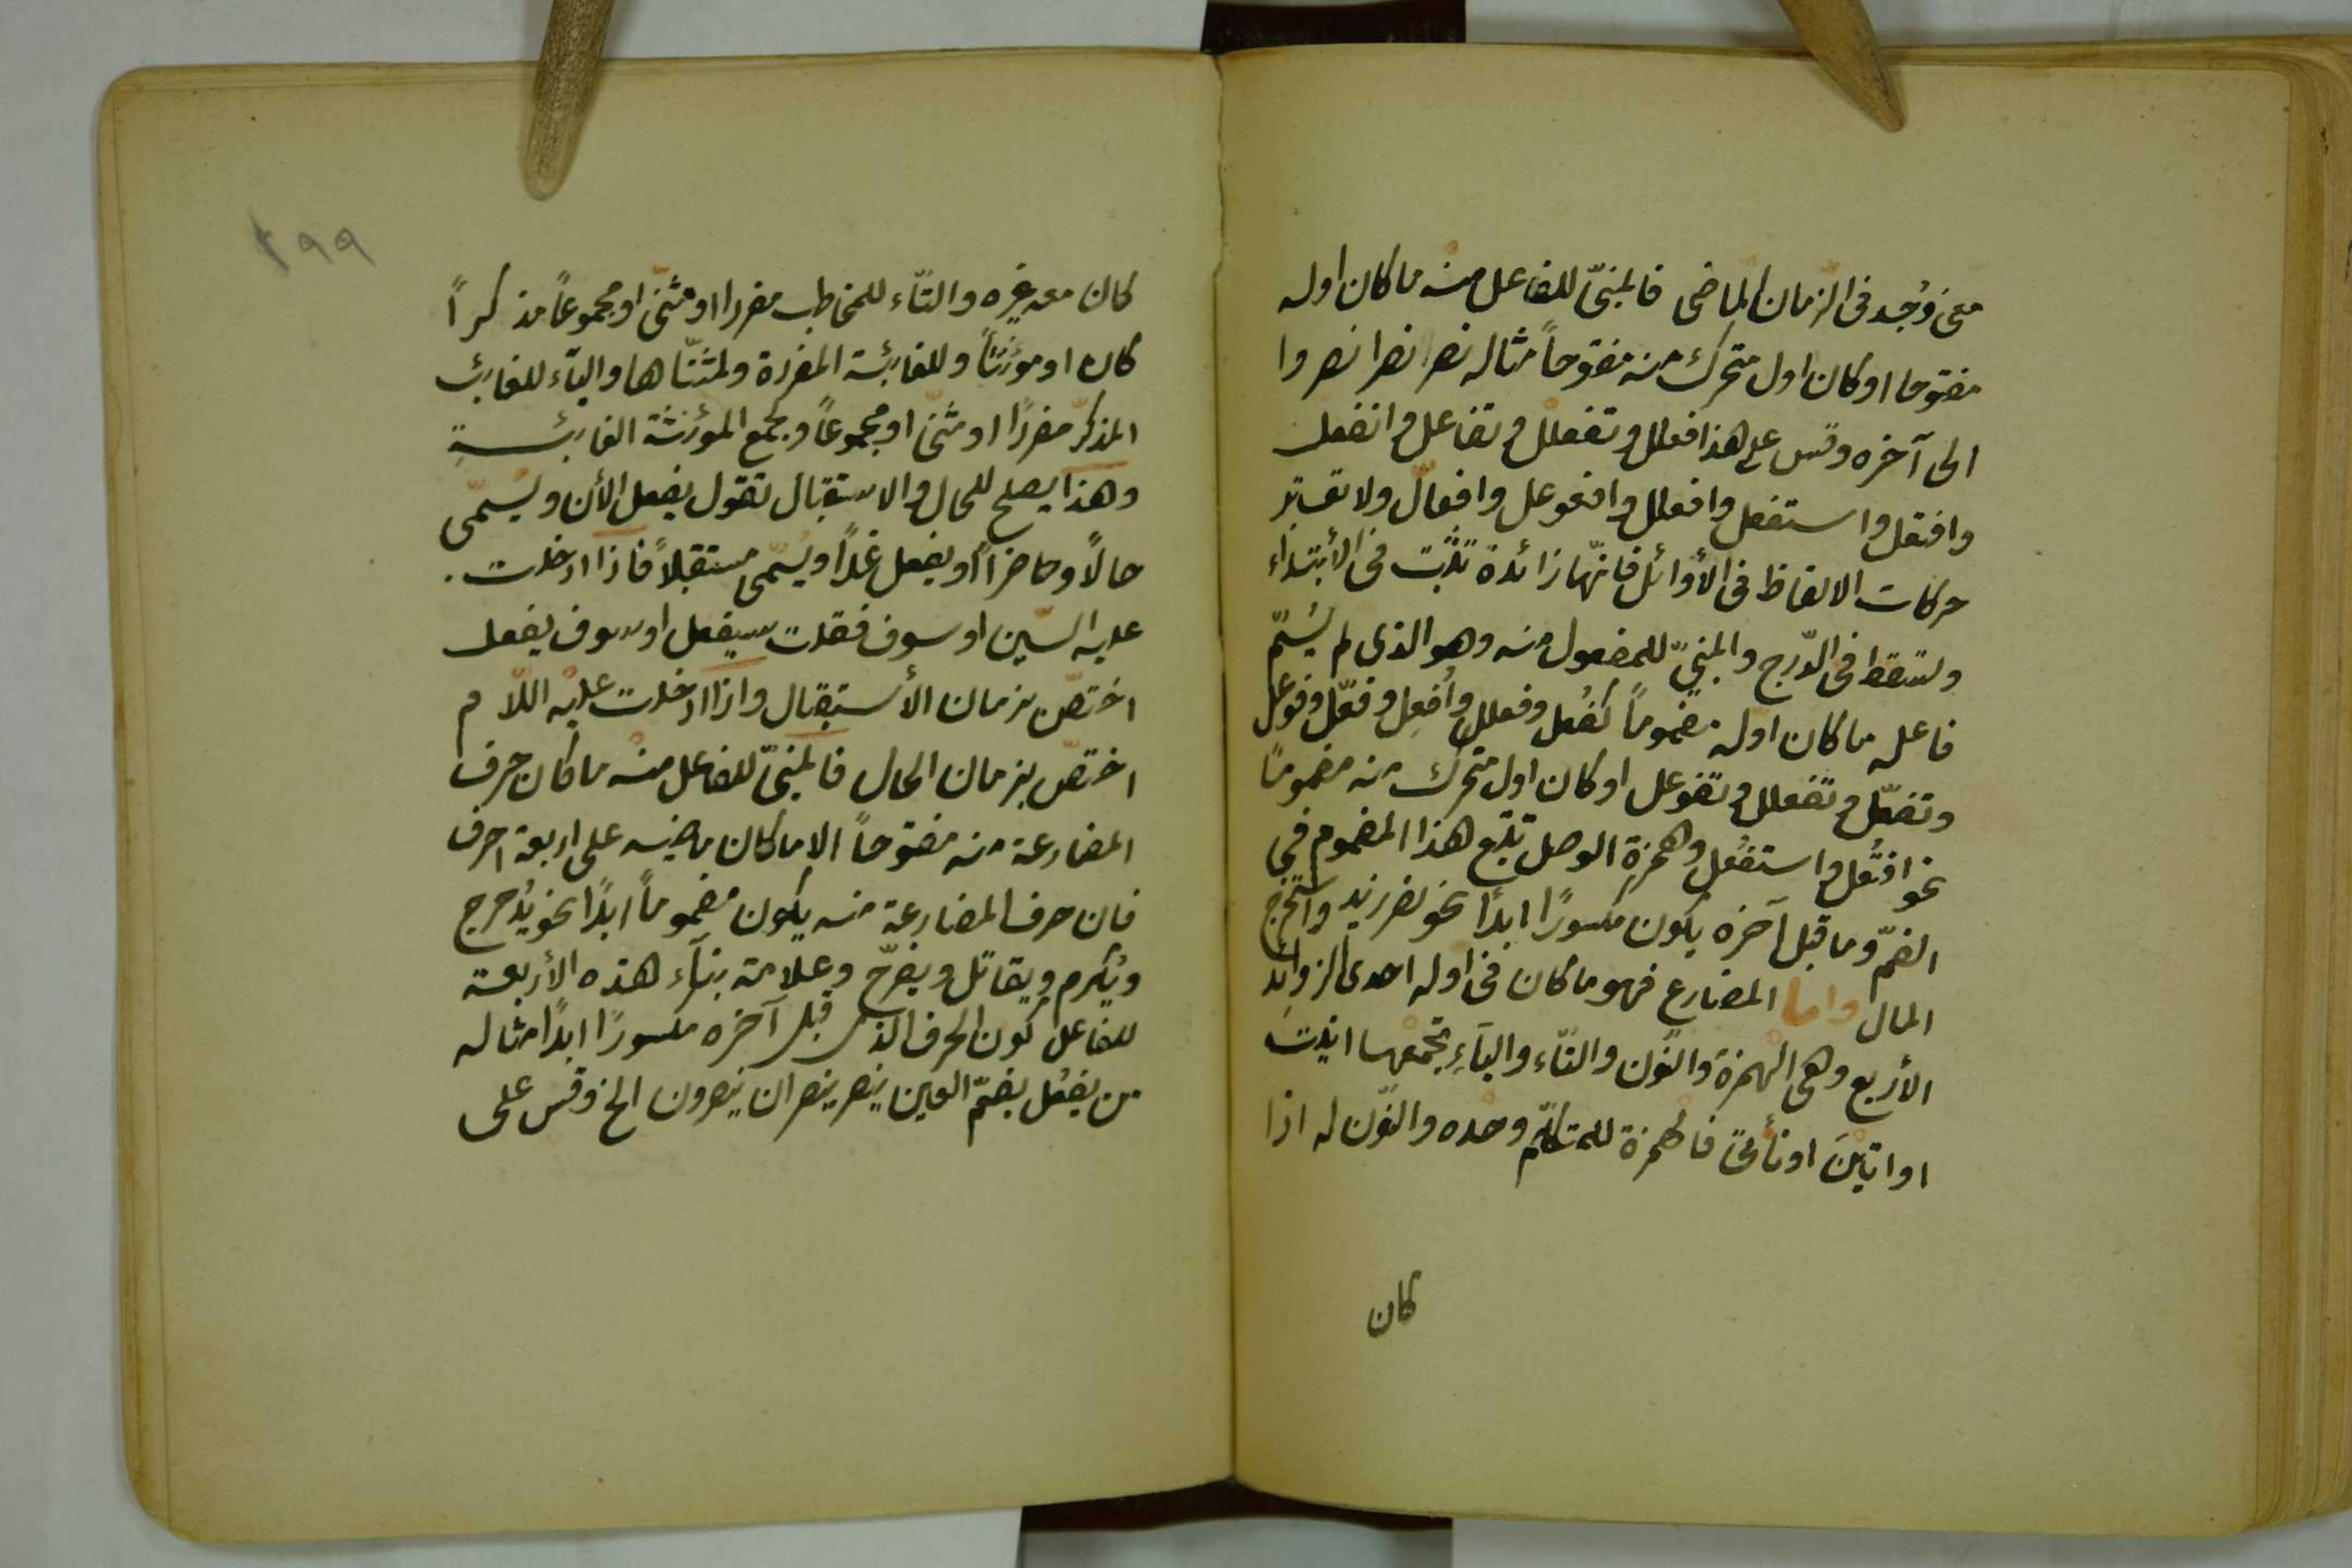 معنى وُجد فى الزمان الماضى فالمبنىّ للفاعل منه ما كان اوله
مفتوحا او كان اول متحرك منه مفتوحاً مثاله نصر نصرا نصروا
الى آخره وقس على هذا فعلل وتفعلل وتفاعل وانفعل
وافتعل واستفعل وافعلل وافعوعل وافعالّ ولا تعتبر
حركات الالفاظ فى الأوائل فانّها زائدة تثبت فى الأبتداء
وتسقط فى الدّرج والمبنىّ للمفعول منه وهو الذى لم يُسَمّ
فاعله ما كان اوله مضموماً كفُعل وفعلل وأُفعِل وفعّل وفوعل
وتفعّل وتفعلل وتفوعل او كان اول متحرك منه مضموماً
نحو افتُعل واستفُعل وهمزة الوصل تتبع هذا المضموم فى
الضمّ وما قبل آخره يكون مكسورًا ابدًا نحو نصر زيد واستخرج
المال واما المضارع فهو ما كان فى اوله احدى الزوائد
الأربع وهى الهمزة والنّون والتّاء والياءِ تجمعها انيت
او اتين او نأتى فالهمزة للمتكلّم وحده والنّون له اذا
كان
١٩٩
كان معه غيره والتّاء للمخاطب مفردا او مثنّى او مجموعاً مذكراً
كان او مؤنثاً وللغائبة المفردة ولمثنّاها والياء للغائب
المذكّر مفردًا او مثنّى او مجموعاً ولجمع المؤنثة الغائبةِ
وهذا يصلح للحال والاستقبال تقول يفعل الأن ويسمّى
حالاً وحاضراً او يفعل غداً ويُسمّى مستقبلاً فاذا ادخلت
عليه السّين او سوف فقلت سيفعل او سوف يفعل
اختصّ بزمان الأستقبال واذا ادخلت عليه اللّام
اختصّ بزمان الحال فالمبنىّ للفاعل منه ما كان حرف
المضارعة منه مفتوحاً الا ما كان ماضيه على اربعة احرف
فان حرف المضارعة منه يكون مضموماً ابدًا نحو يُدحرج
ويُكرم ويقاتل ويفرّح وعلامة بناء هذه الأربعة
للفاعل كون الحرف الذى قبل آخره مكسورًا ابدًا مثاله
من يفعُل بضمّ العين ينصر ينصران ينصرون الخ وقس على